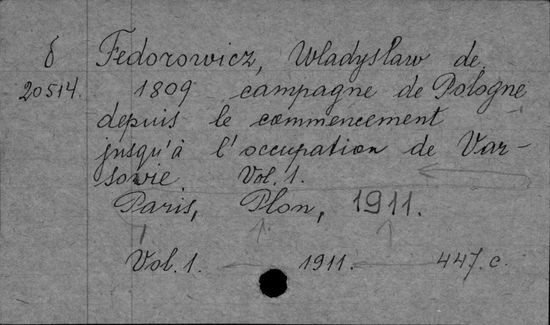 δ Fedorowicz, Wladysław de.
20514. 1809 campagne de Pologne
depuis le commencement
jusqu'à l'occupation de Var-
sovie Vol. 1.
Paris, Plon, 1911.
Vol. 1. — 1911. — 447. c.